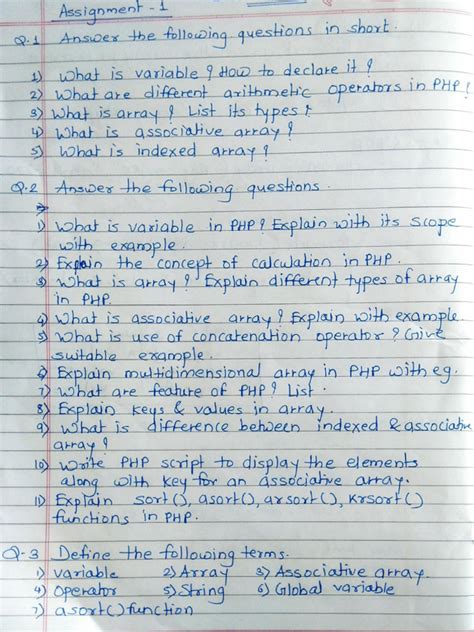 Assignment - 1
Q.1 Answer the following questions in short.
1) What is variable ? How to declare it ?
2) What are different arithmetic operators in PHP ?
3) What is array ? List its types !
4) What is associative array ?
5) What is indexed array ?
Q.2 Answer the following questions.
1) What is variable in PHP ? Explain with its scope
with example.
2) Explain the concept of calculation in PHP.
3) What is array ? Explain different types of array
in PHP.
4) What is associative array ? Explain with example.
5) What is use of concatenation operator ? Give
suitable example.
6) Explain multidimensional array in PHP with eg.
7) What are feature of PHP ? List.
8) Explain keys & values in array.
9) What is difference between indexed & associative
array ?
10) Write PHP script to display the elements
along with key for an associative array.
11) Explain sort(), asort(), arsort(), Krsort()
functions in PHP.
Q-3 Define the following terms.
1) variable 2) Array 3) Associative array
4) Operator 5) String 6) Global variable
7) asort() function